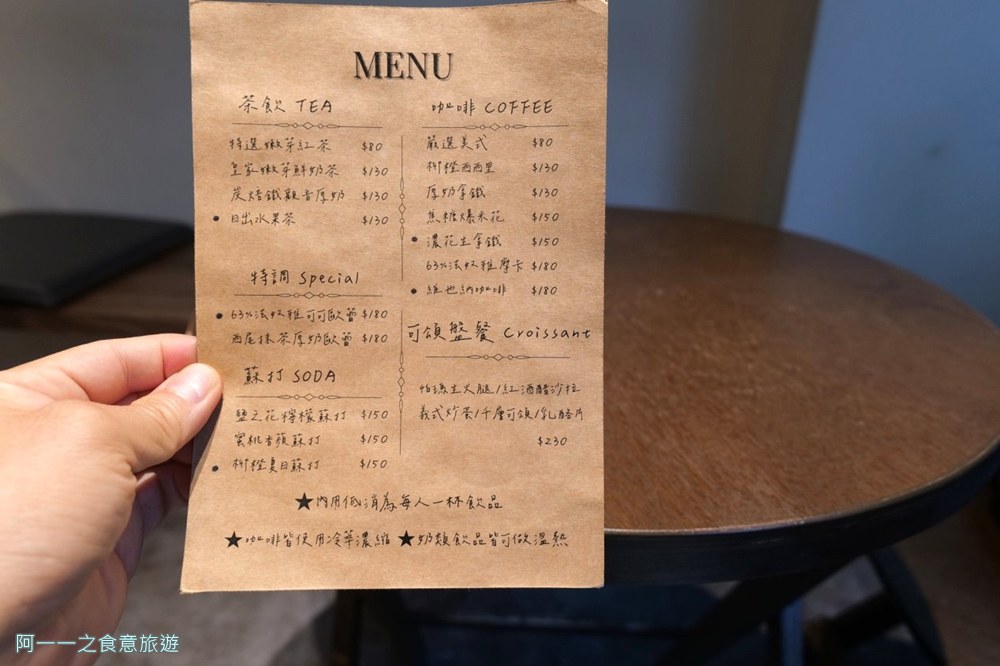 MENU
茶飲 TEA
特選嫩芽紅茶 $80
皇家嫩芽鮮奶茶 $130
炭焙鐵觀音厚奶 $130
• 日出水果茶 $130
特調 Special
• 63%法芙雅可可歐蕾 $180
西尾抹茶厚奶歐蕾 $180
蘇打 SODA
鹽之花檸檬蘇打 $150
蜜桃香蘋蘇打 $150
• 柳橙夏日蘇打 $150
咖啡 COFFEE
嚴選美式 $80
柳橙西西里 $130
厚奶拿鐵 $130
焦糖爆米花 $150
• 濃花生拿鐵 $150
63%法芙雅摩卡 $180
• 維也納咖啡 $180
可頌盤餐 Croissant
帕瑪生火腿/紅酒醋沙拉
義式炒蛋/千層可頌/乳酪片
$230
★內用低消為每人一杯飲品
★咖啡皆使用冷萃濃縮 ★奶類飲品皆可做溫熱
阿一一之食意旅遊